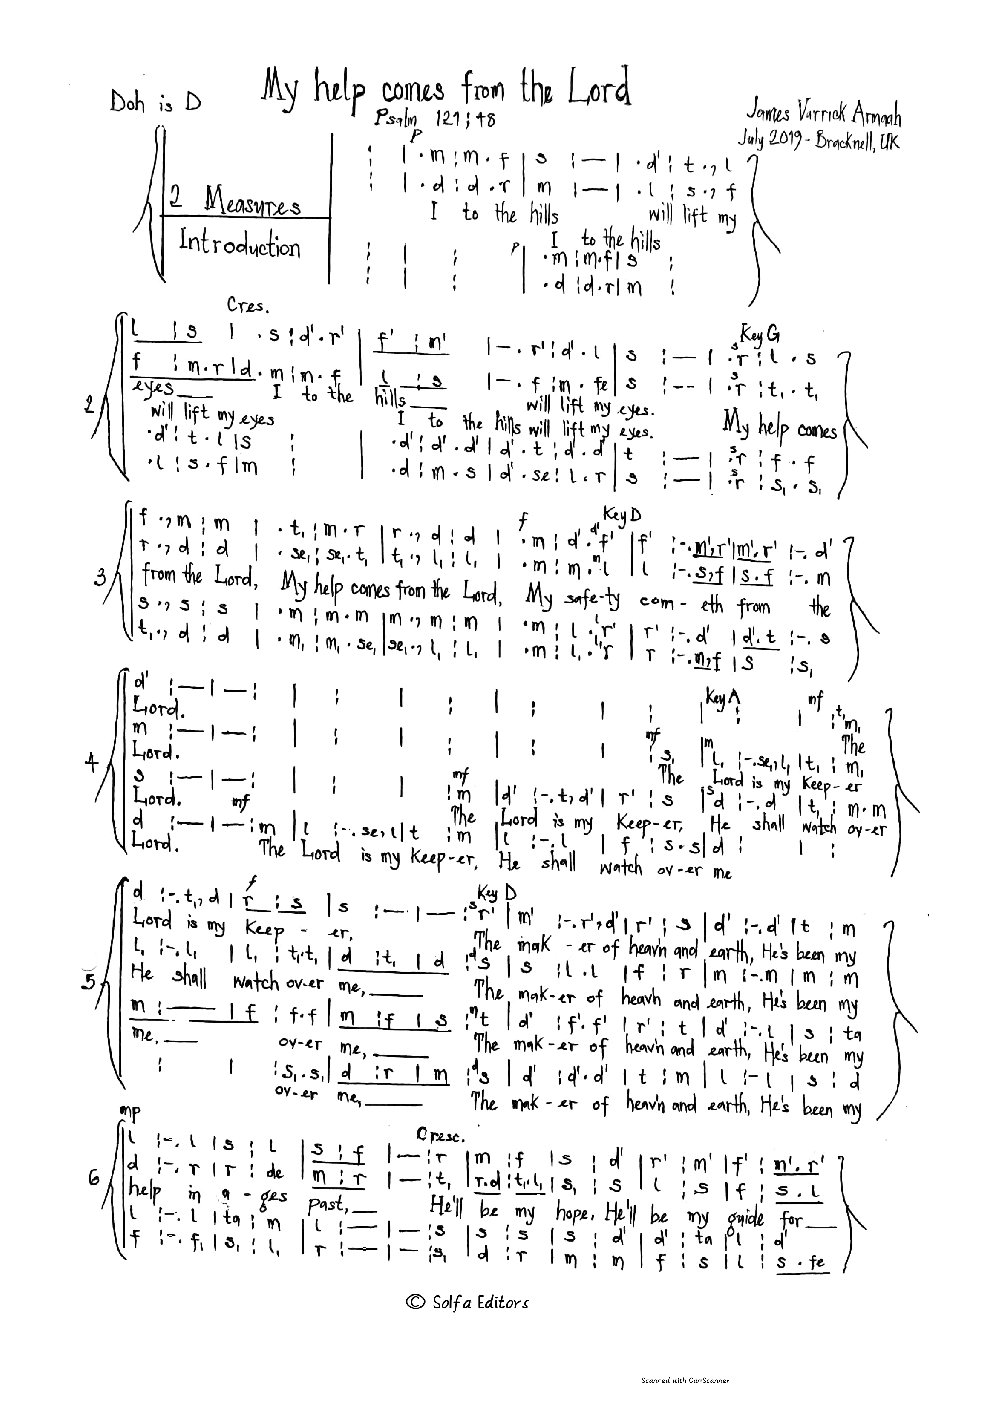 My help comes from the Lord
Doh is D
Psalm 121; 48
James Varrick Armaah
July 2019 - Bracknell, UK
p
| . m ¦ m . f | s ¦ — | . d' ¦ t . , l
2 Measures
| . d ¦ d . r | m ¦ — | . l ¦ s . , f
I to the hills will lift my
Introduction
I to the hills
p | . m ¦ m . f | s ¦
| . d ¦ d . r | m ¦
Cres.
l ¦ s | . s ¦ d' . r' | f' ¦ m' | — . r' ¦ d' . l | s ¦ — | . r ¦ l . s
Key G
f ¦ m . r | d . m ¦ m . f | l ¦ s | — . f ¦ m . fe | s ¦ — | . r ¦ t, . t,
eyes___ I to the hills___ will lift my eyes.
2
will lift my eyes I to the hills will lift my eyes. My help comes
. d' ¦ t . l | s ¦ | . d' ¦ d' . d' | d' . t ¦ d' . d' | t ¦ — | . r ¦ f . f
. l ¦ s . f | m ¦ | . d ¦ m . s | d' . se ¦ l . r | s ¦ — | . r ¦ s, . s,
f Key D
f . , m ¦ m | . t, ¦ m . r | r . , d ¦ d | . m ¦ d' . f' | f' ¦ - . m', r' | m' . r' ¦ - . d'
r . , d ¦ d | . se, ¦ se, . t, | t, . , l, ¦ l, | . m ¦ m . l | l ¦ - . s, f | s . f ¦ - . m
3
from the Lord, My help comes from the Lord, My safe-ty com - eth from the
s . , s ¦ s | . m ¦ m . m | m . , m ¦ m | . m ¦ l . r' | r' ¦ - . d' | d' . t ¦ - . s
t, . , d ¦ d | . m, ¦ m, . se, | se, . , l, ¦ l, | . m ¦ l, . r | r ¦ - . m, f | s ¦ s,
d' ¦ — | — ¦ Key A mf
Lord. The
m ¦ — | — ¦ mf
Lord. The Lord is my Keep - er
4
s ¦ — | — ¦ mf ¦ m | d' ¦ - . t, d' | r' ¦ s | d ¦ - . d | t, ¦ m . m
Lord. mf The Lord is my Keep-er, He shall watch ov-er
d ¦ — | — ¦ m | l ¦ - . se, l | t ¦ m | l ¦ - . l | f ¦ s . s | d ¦
Lord. The Lord is my Keep-er, He shall watch ov-er me
f Key D
d ¦ - . t, , d | r ¦ s | s ¦ — | — ¦ r' | m' ¦ - . r', d' | r' ¦ s | d' ¦ - . d' | t ¦ m
Lord is my Keep - er, The mak - er of heavn and earth, He's been my
l, ¦ - . l, | l, ¦ t, . t, | d ¦ t, | d ¦ s | s ¦ l . l | f ¦ r | m ¦ - . m | m ¦ m
5
He shall watch ov-er me,___ The mak-er of heavn and earth, He's been my
m ¦ — | f ¦ f . f | m ¦ f | s ¦ t | d' ¦ f' . f' | r' ¦ t | d' ¦ - . l | s ¦ ta
me,___ ov-er me,___ The mak-er of heavn and earth, He's been my
¦ | ¦ s, . s, | d ¦ r | m ¦ s | d' ¦ d' . d' | t ¦ m | l ¦ - l | s ¦ d
ov-er me,___ The mak-er of heavn and earth, He's been my
mp Cresc.
l ¦ - . l | s ¦ l | s ¦ f | — ¦ r | m ¦ f | s ¦ d' | r' ¦ m' | f' ¦ m' . r'
d ¦ - . r | r ¦ de | m ¦ r | — ¦ t, | r . d ¦ t, . l, | s, ¦ s | l ¦ s | f ¦ s . l
6
help in a - ges past,__ He'll be my hope, He'll be my guide for___
l ¦ - . l | ta ¦ m | l ¦ — | — ¦ s | s ¦ s | s ¦ d' | d' ¦ ta | l ¦ d'
f ¦ - . f, | s, ¦ l, | r ¦ — | — ¦ s, | d ¦ r | m ¦ m | f ¦ s | l ¦ s . fe
© Solfa Editors
Scanned with CamScanner